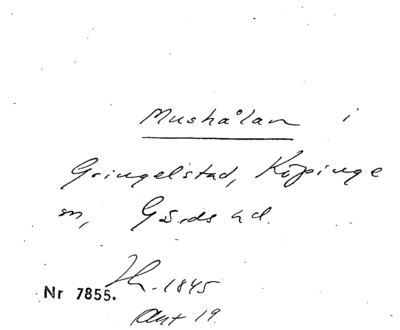 Mushålan i
Gringelstad, Köpinge
sn, Gärds hd.
Th. 1845
Nr 7855.
Akt 19.